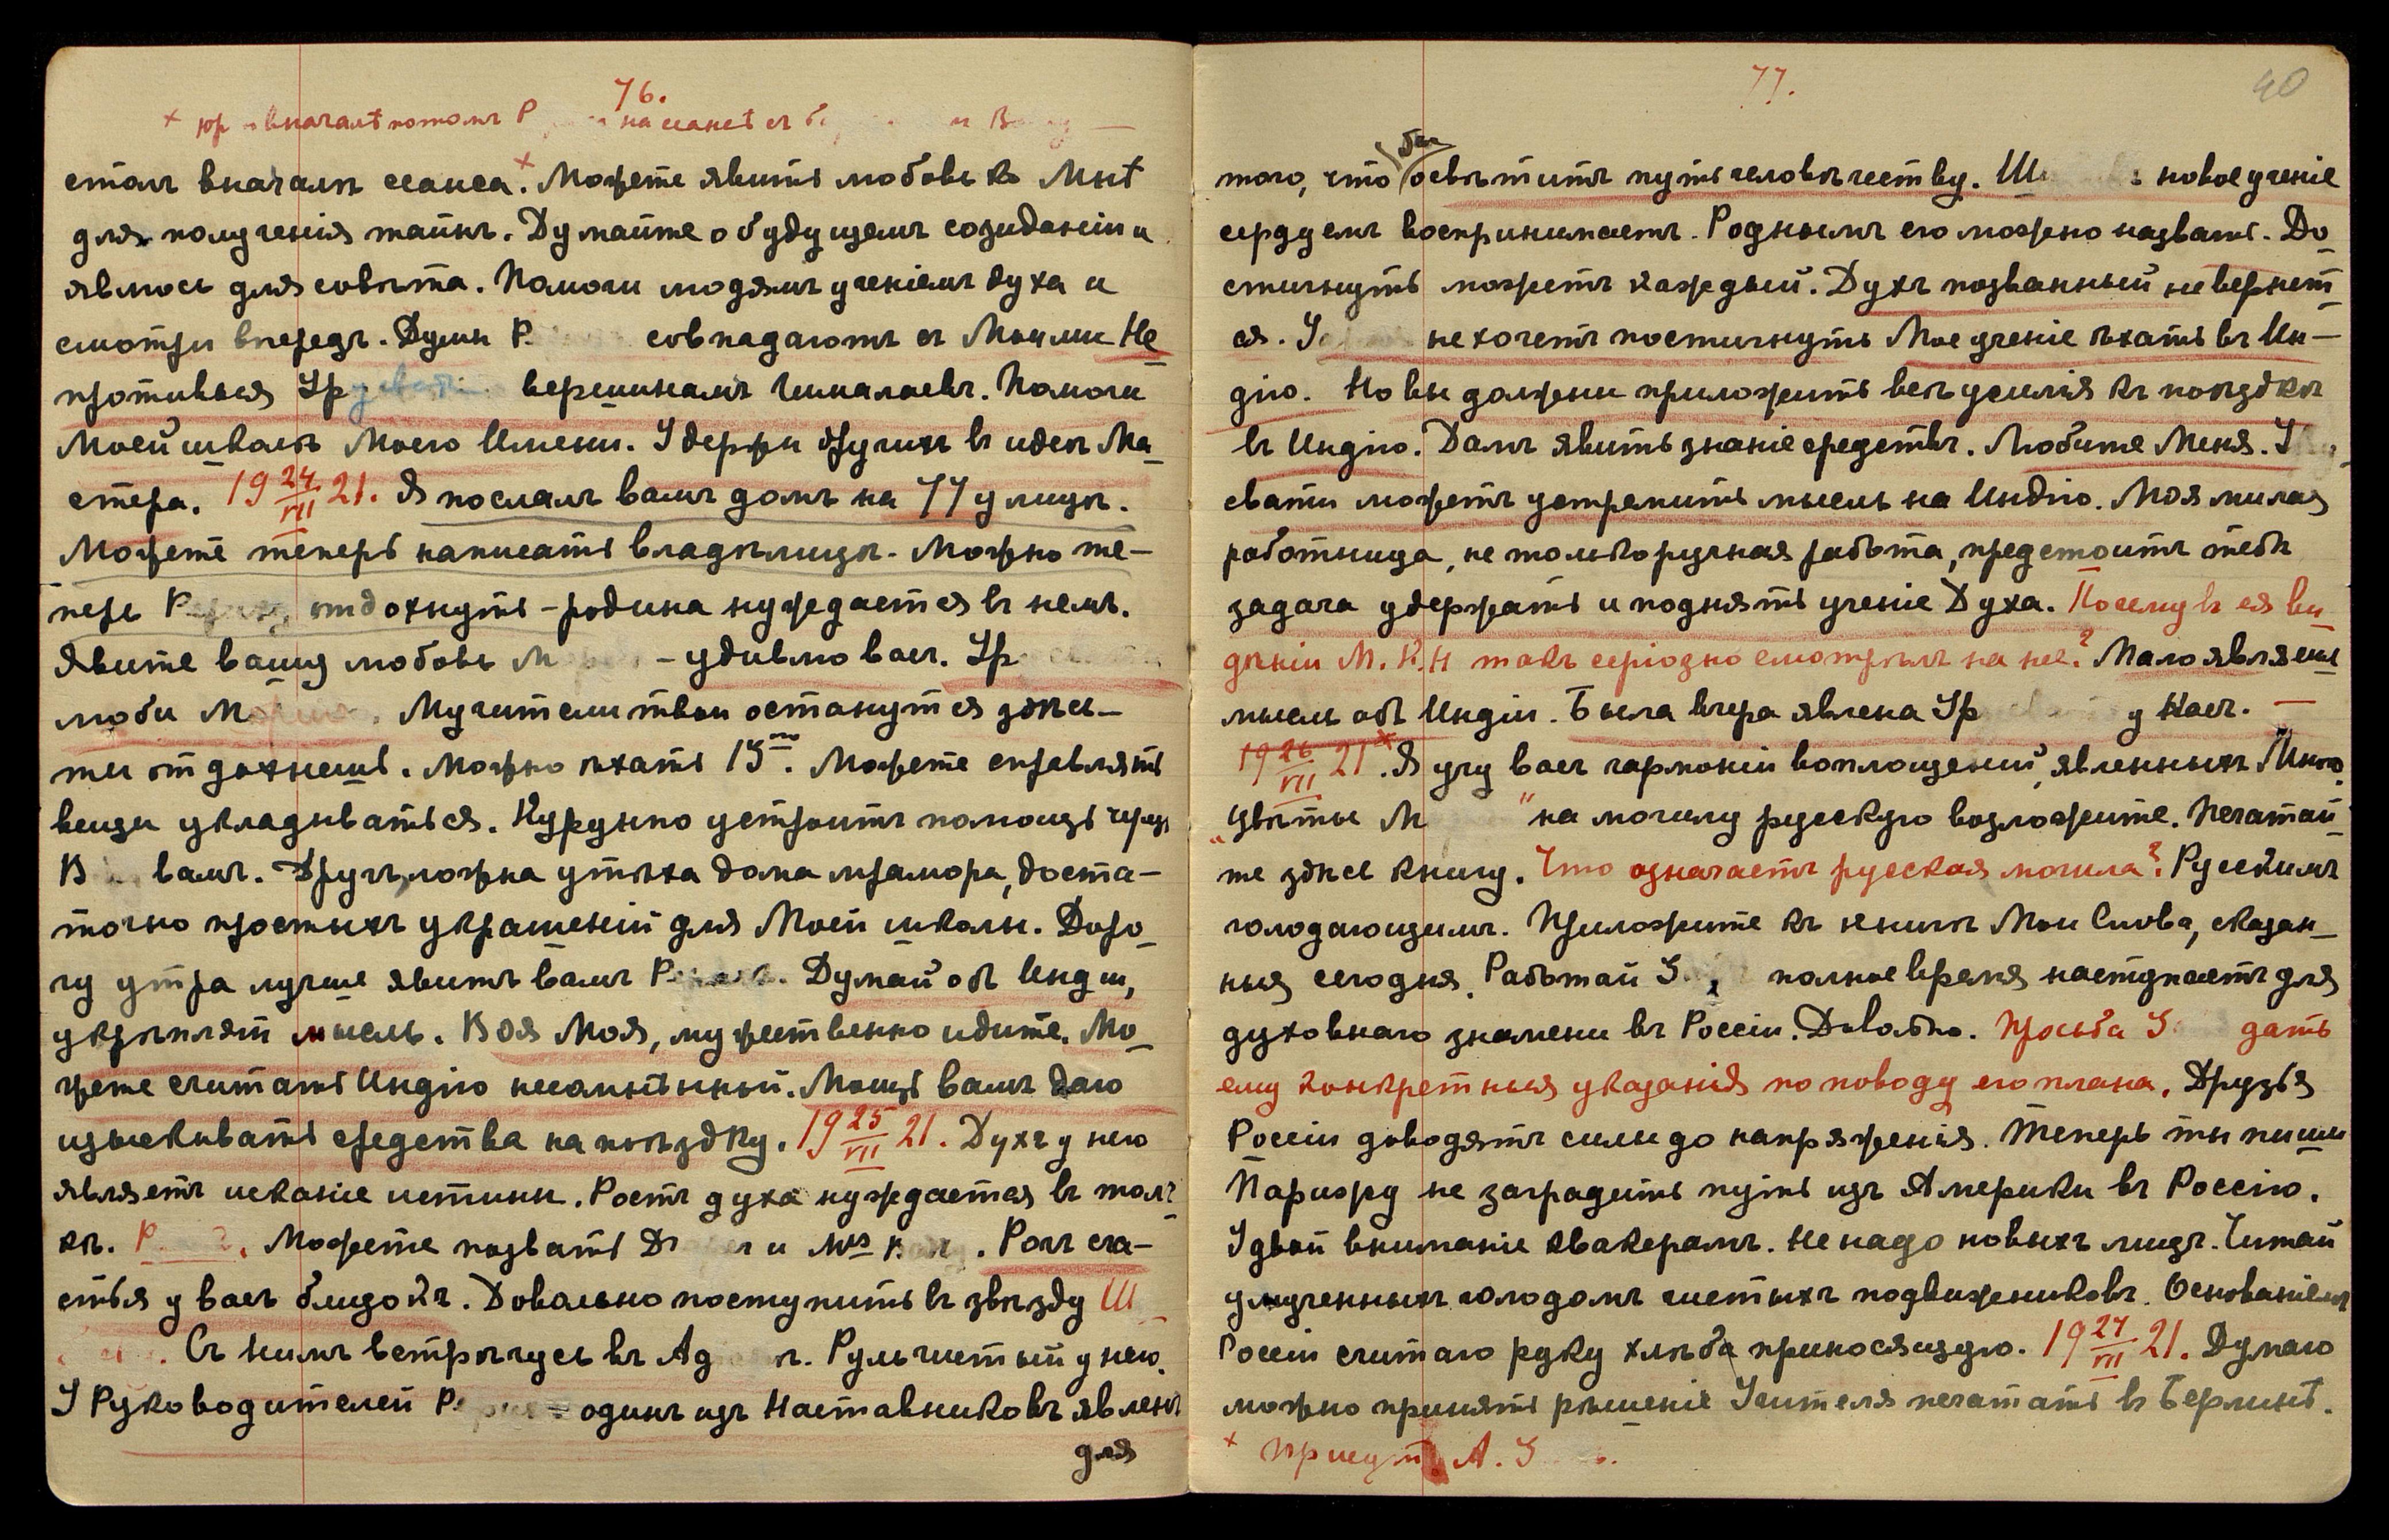 76.
× юр вначалѣ потомъ Р на сеансѣ съ
сталъ вначалѣ сеанса.× Можете явить любовь ко Мнѣ
для полученія тайнъ. Думайте о будущемъ созиданіи и
явлюсь для совѣта. Помоги людямъ ученіемъ духа и
смотри впередъ. Думы Р совпадаютъ съ Моими Не
противься Ур вершинамъ Гималаевъ. Помоги
Моей школѣ Моего Имени. Удержи другихъ въ идеѣ Ма-
стера. 19 24/VII 21. Я послалъ вамъ домъ на 77 улицѣ.
Можете теперь написать владѣлицѣ. Можно те-
перь Рериху отдохнуть – родина нуждается въ немъ.
Явите вашу любовь М – удивлю васъ. Ур
люби М. Мучители твои останутся здѣсь –
ты отдохнешь. Можно ѣхать 15го. Можете справлять
вещи укладываться. Кузунко устроитъ помощь черезъ
В вамъ. Другъ, ложна утѣха дома мрамора, доста-
точно простыхъ украшеній для Моей школы. Доро-
гу утра лучше явитъ вамъ Рерихъ. Думай объ Индіи,
укрѣпляй мысль. Воя Моя, мужественно идите. Мо-
жете считать Индію несомнѣнной. Мощь вамъ даю
изыскивать средства на поѣздку. 19 25/VII 21. Духъ у него
являетъ исканіе истины. Ростъ духа нуждается въ толч-
кѣ. Р. Можете позвать и Mrs. Рогъ сча-
стья у васъ близокъ. Довольно поступить въ звѣзду Ш
. Съ нимъ встрѣчусь въ Ад. Руль чистый у него.
У Руководителей Рерих – одинъ изъ Наставниковъ явленъ
для
77.
40
того, чтобы освѣтить путь человѣчеству. Ш новое ученіе
сердцемъ воспринимаетъ. Роднымъ его можно назвать. До-
стигнуть можетъ каждый. Духъ позванный не вернет-
ся. У не хочетъ постигнуть Мое ученіе ѣхать въ Ин-
дію. Но вы должны приложить всѣ усилія къ поѣздкѣ
въ Индію. Дамъ явить знаніе средствъ. Любите Меня. Уру-
свати можетъ устремить мысль на Индію. Моя милая
работница, не только ручная работа, предстоитъ тебѣ
задача удержать и поднять ученіе Духа. Почему въ ея ви-
дѣніи М. К.Н такъ серіозно смотрѣлъ на нее? Мало являешь
мысль объ Индіи. Была вчера явлена Ур у Насъ. –
19 26/VII 21×. Я учу васъ гармоніи воплощеній, явленныхъ Мною.
„Цвѣты М“ на могилу русскую возложите. Печатай-
те здѣсь книгу. Что означаетъ русская могила? Русскимъ
голодающимъ. Приложите къ книгѣ Мои Слова, сказан-
ныя сегодня. Работай У, полное время наступаетъ для
духовнаго знамени въ Россіи. Довольно. Просьба У дать
ему конкретныя указанія по поводу его плана. Друзья
Россіи доводятъ силы до напряженія. Теперь ты пиши
Парижу не заградить путь изъ Америки въ Россію.
Удвой вниманіе квакерамъ. Не надо новыхъ лицъ. Читай
умученныхъ голодомъ чистыхъ подвижниковъ. Основаніемъ
Россіи считаю руку хлѣба приносящую. 19 27/VII 21. Думаю
можно принять рѣшеніе Учителя печатать въ Берлинѣ.
× присут. А. У